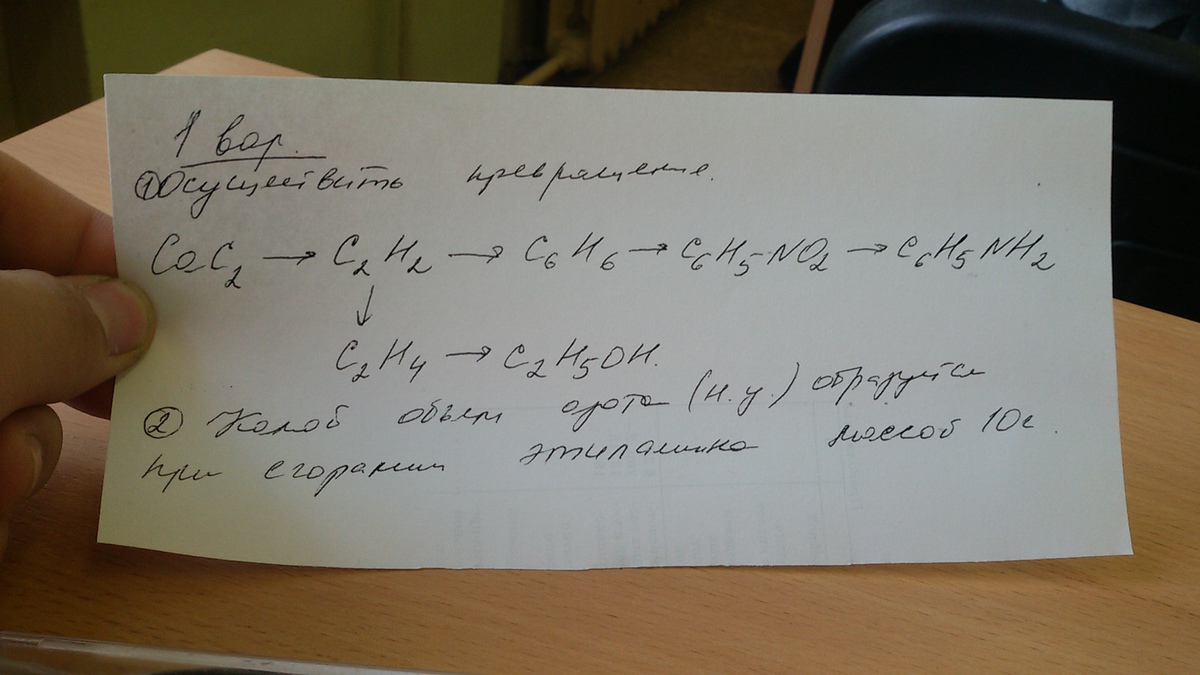 1 вар.
① Осуществить превращение.
CaC₂ → C₂H₂ → C₆H₆ → C₆H₅-NO₂ → C₆H₅NH₂
↓
C₂H₄ → C₂H₅OH.
② Какой объем азота (н.у.) образуется
при сгорании этиламина массой 10г.